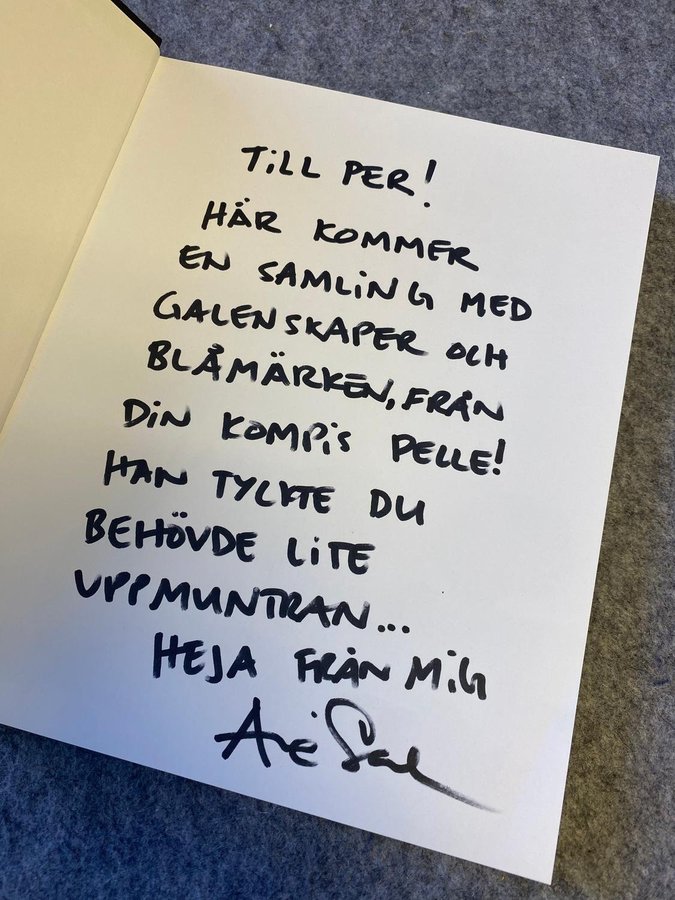 TILL PER!
HÄR KOMMER
EN SAMLING MED
GALENSKAPER OCH
BLÅMÄRKEN, FRÅN
DIN KOMPIS PELLE!
HAN TYCKTE DU
BEHÖVDE LITE
UPPMUNTRAN...
HEJA FRÅN MIG